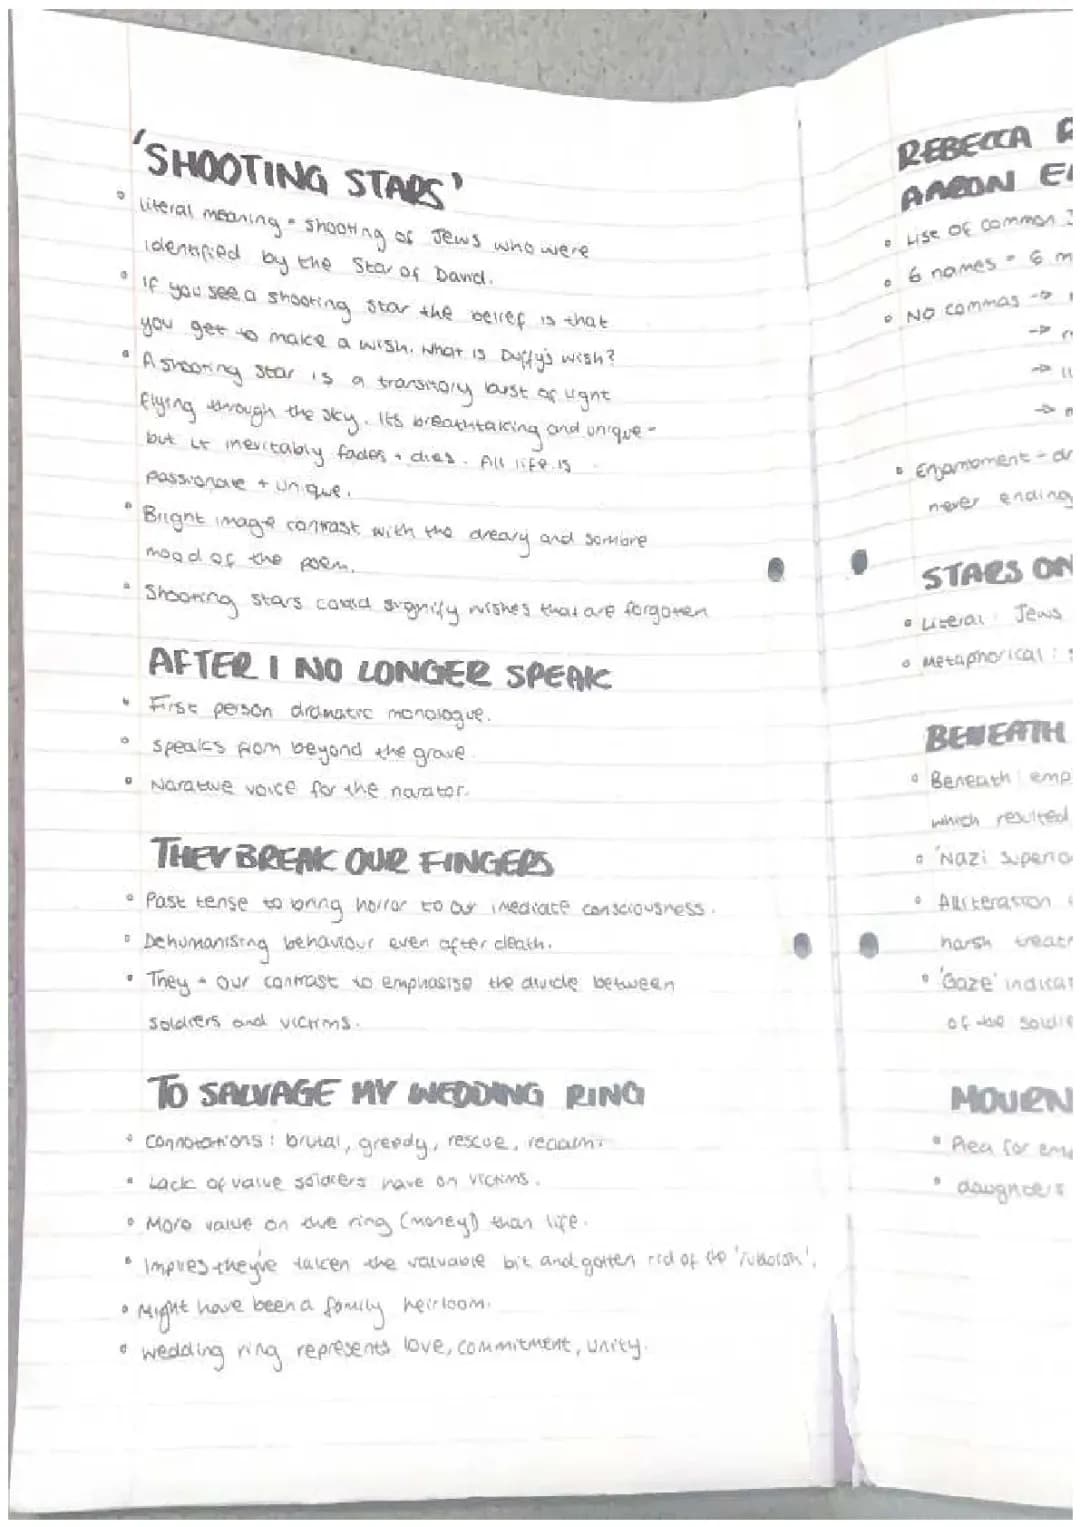 'SHOOTING STARS'
• Literal meaning - shooting of Jews who were
identified by the Star of David.
• If you see a shooting star the belief is that
you get to make a wish. What is Duffy's wish?
• A shooting star is a transitory burst of light
flying through the sky. Its breathtaking and unique -
but it inevitably fades + dies. All life is
passionate + unique.
• Bright image contrast with the dreary and sombre
mood of the poem.
• Shooting stars could signify wishes that are forgotten
AFTER I NO LONGER SPEAK
• First person dramatic monologue.
• Speaks from beyond the grave.
• Narative voice for the narator.
THEY BREAK OUR FINGERS
• Past tense to bring horror to our imediate consciousness.
• Dehumanising behaviour even after death.
• They - Our contrast to emphasise the divide between
soldiers and victims.
TO SALVAGE MY WEDDING RING
• Connotations: brutal, greedy, rescue, reclaim.
• Lack of value soldiers have on victims.
• More value on the ring (money) than life.
• Implies they've taken the valuable bit and gotten rid of the 'rubbish'.
• Might have been a family heirloom.
• wedding ring represents love, commitment, unity.
REBECCA R
AARON E
• List of common J
• 6 names - 6 m
• No commas ->
->
->
->
• Enjambment -
never ending
STARS ON
• Literal: Jews
• Metaphorical:
BENEATH
• Beneath: emp
which resulted
• 'Nazi superio
• Alliteration
harsh treat
• 'Gaze' indicat
of the soldie
MOURN
• Plea for em
• daughters